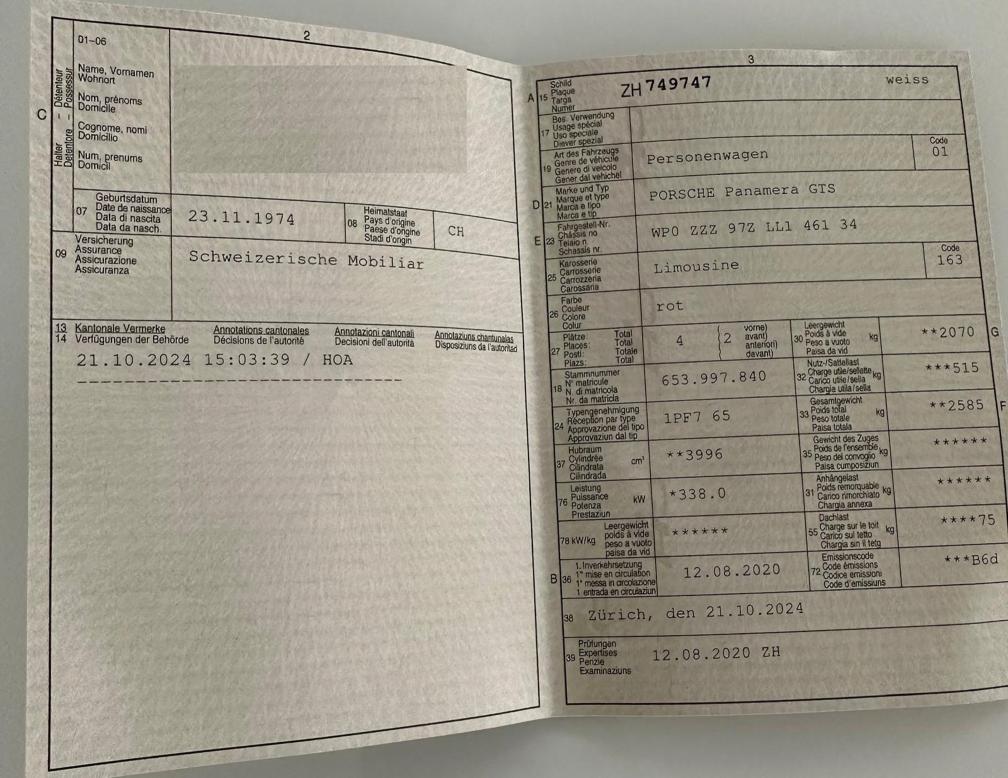 2
01–06
C
Halter – Détenteur
Detentore – Possessur
Name, Vornamen
Wohnort
Nom, prénoms
Domicile
Cognome, nomi
Domicilio
Num, prenums
Domicil
07
Geburtsdatum
Date de naissance
Data di nascita
Data da nasch.
23.11.1974
08
Heimatstaat
Pays d'origine
Paese d'origine
Stadi d'origin
CH
09
Versicherung
Assurance
Assicurazione
Assicuranza
Schweizerische Mobiliar
13
14
Kantonale Vermerke
Verfügungen der Behörde
Annotations cantonales
Décisions de l'autorité
Annotazioni cantonali
Decisioni dell'autorità
Annotaziuns chantunalas
Disposiziuns da l'autoritad
21.10.2024 15:03:39 / HOA
3
A
15
Schild
Plaque
Targa
Numer
ZH 749747
weiss
17
Bes. Verwendung
Usage spécial
Uso speciale
Diever spezial
19
Art des Fahrzeugs
Genre de véhicule
Genere di veicolo
Gener dal vehichel
Personenwagen
Code
01
D
21
Marke und Typ
Marque et type
Marca e tipo
Marca e tip
PORSCHE Panamera GTS
E
23
Fahrgestell-Nr.
Châssis no
Telaio n.
Schassis nr.
WP0 ZZZ 97Z LL1 461 34
25
Karosserie
Carrosserie
Carrozzeria
Carossaria
Limousine
Code
163
26
Farbe
Couleur
Colore
Colur
rot
27
Plätze: Total
Places: Total
Posti: Totale
Plazs: Total
4
2
vorne)
avant)
anteriori)
davant)
30
Leergewicht
Poids à vide
Peso a vuoto
Paisa da vid
kg
**2070
G
18
Stammnummer
N° matricule
N. di matricola
Nr. da matricla
653.997.840
32
Nutz-/Sattellast
Charge utile/sellette
Carico utile/sella
Chargia utila/sella
kg
***515
24
Typengenehmigung
Réception par type
Approvazione del tipo
Approvaziun dal tip
1PF7 65
33
Gesamtgewicht
Poids total
Peso totale
Paisa totala
kg
**2585
F
37
Hubraum
Cylindrée
Cilindrata
Cilindrada
cm³
**3996
35
Gewicht des Zuges
Poids de l'ensemble
Peso del convoglio
Paisa cumposiziun
kg
******
76
Leistung
Puissance
Potenza
Prestaziun
kW
*338.0
31
Anhängelast
Poids remorquable
Carico rimorchiato
Chargia annexa
kg
******
78 kW/kg
Leergewicht
poids à vide
peso a vuoto
paisa da vid
******
55
Dachlast
Charge sur le toit
Carico sul tetto
Chargia sin il tetg
kg
****75
B
36
1. Inverkehrsetzung
1re mise en circulation
1a messa in circolazione
1 entrada en circulaziun
12.08.2020
72
Emissionscode
Code émissions
Codice emissioni
Code d'emissiuns
***B6d
38
Zürich, den 21.10.2024
39
Prüfungen
Expertises
Perizie
Examinaziuns
12.08.2020 ZH